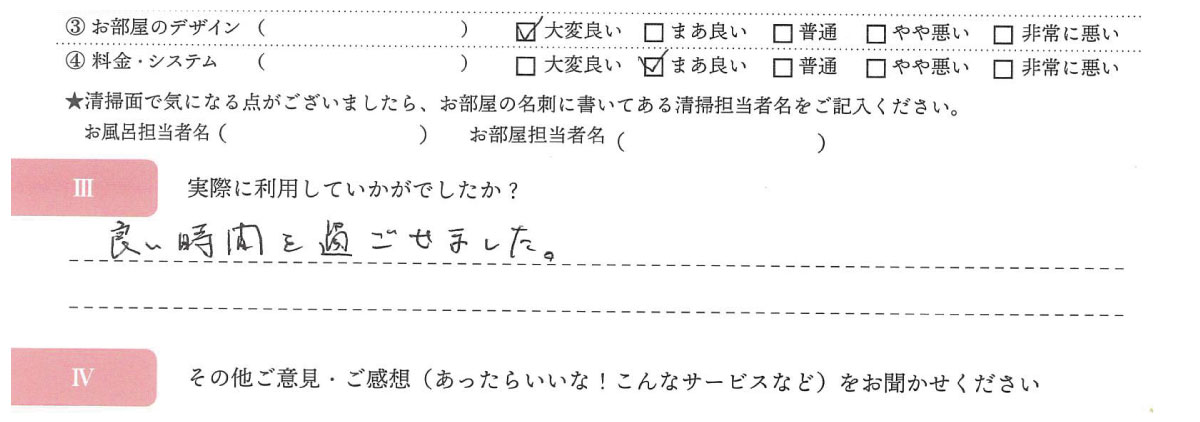 ③ お部屋のデザイン （ ） ☑ 大変良い □ まあ良い □ 普通 □ やや悪い □ 非常に悪い
④ 料金・システム （ ） □ 大変良い ☑ まあ良い □ 普通 □ やや悪い □ 非常に悪い
★清掃面で気になる点がございましたら、お部屋の名刺に書いてある清掃担当者名をご記入ください。
お風呂担当者名（ ） お部屋担当者名（ ）
Ⅲ 実際に利用していかがでしたか？
良い時間を過ごせました。
Ⅳ その他ご意見・ご感想（あったらいいな！こんなサービスなど）をお聞かせください